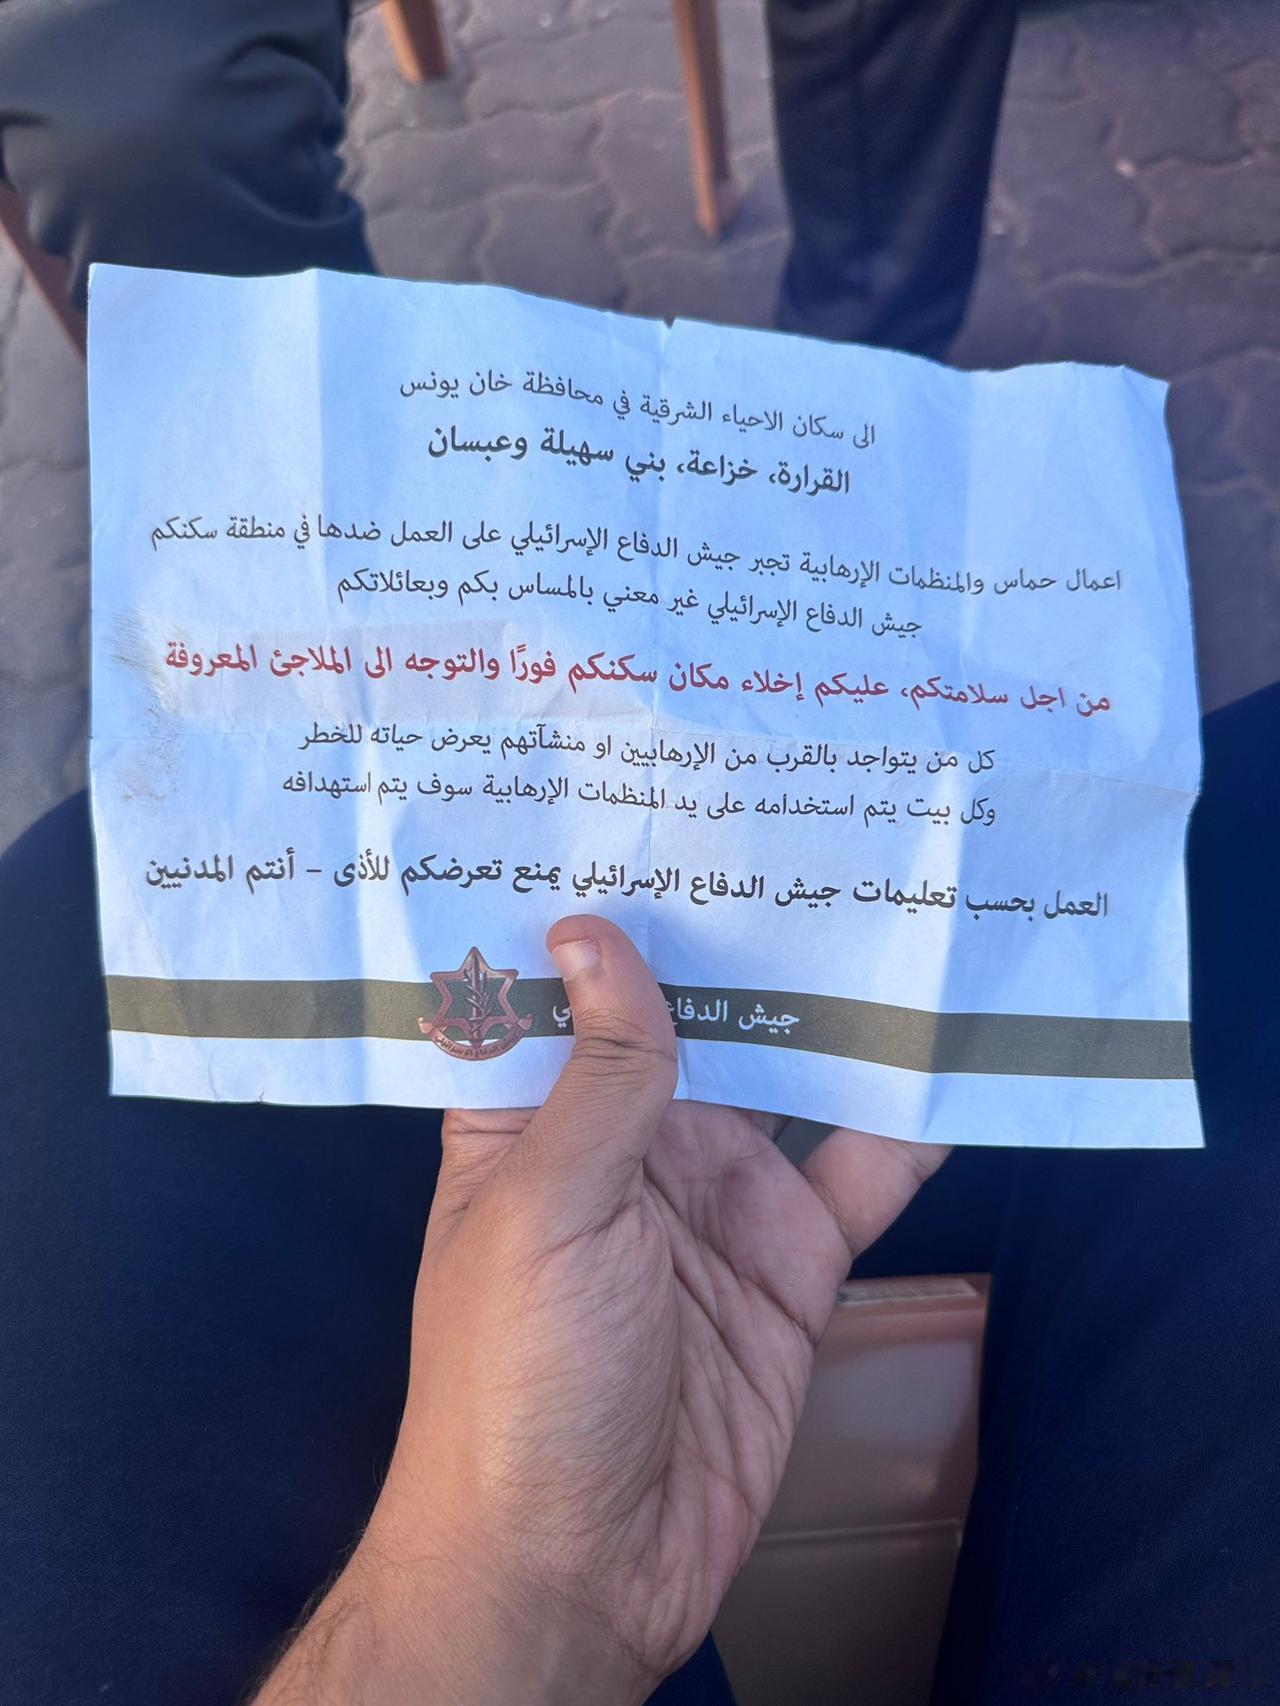 الى سكان الاحياء الشرقية في محافظة خان يونس
القرارة، خزاعة، بني سهيلة وعبسان
اعمال حماس والمنظمات الإرهابية تجبر جيش الدفاع الإسرائيلي على العمل ضدها في منطقة سكنكم
جيش الدفاع الإسرائيلي غير معني بالمساس بكم وبعائلاتكم
من اجل سلامتكم، عليكم إخلاء مكان سكنكم فورًا والتوجه الى الملاجئ المعروفة
كل من يتواجد بالقرب من الإرهابيين او منشآتهم يعرض حياته للخطر
وكل بيت يتم استخدامه على يد المنظمات الإرهابية سوف يتم استهدافه
العمل بحسب تعليمات جيش الدفاع الإسرائيلي يمنع تعرضكم للأذى – أنتم المدنيين
جيش الدفاع